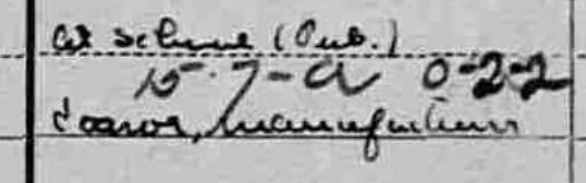 at school (Pub.)
15-7-a 0-2-2
manufacturer